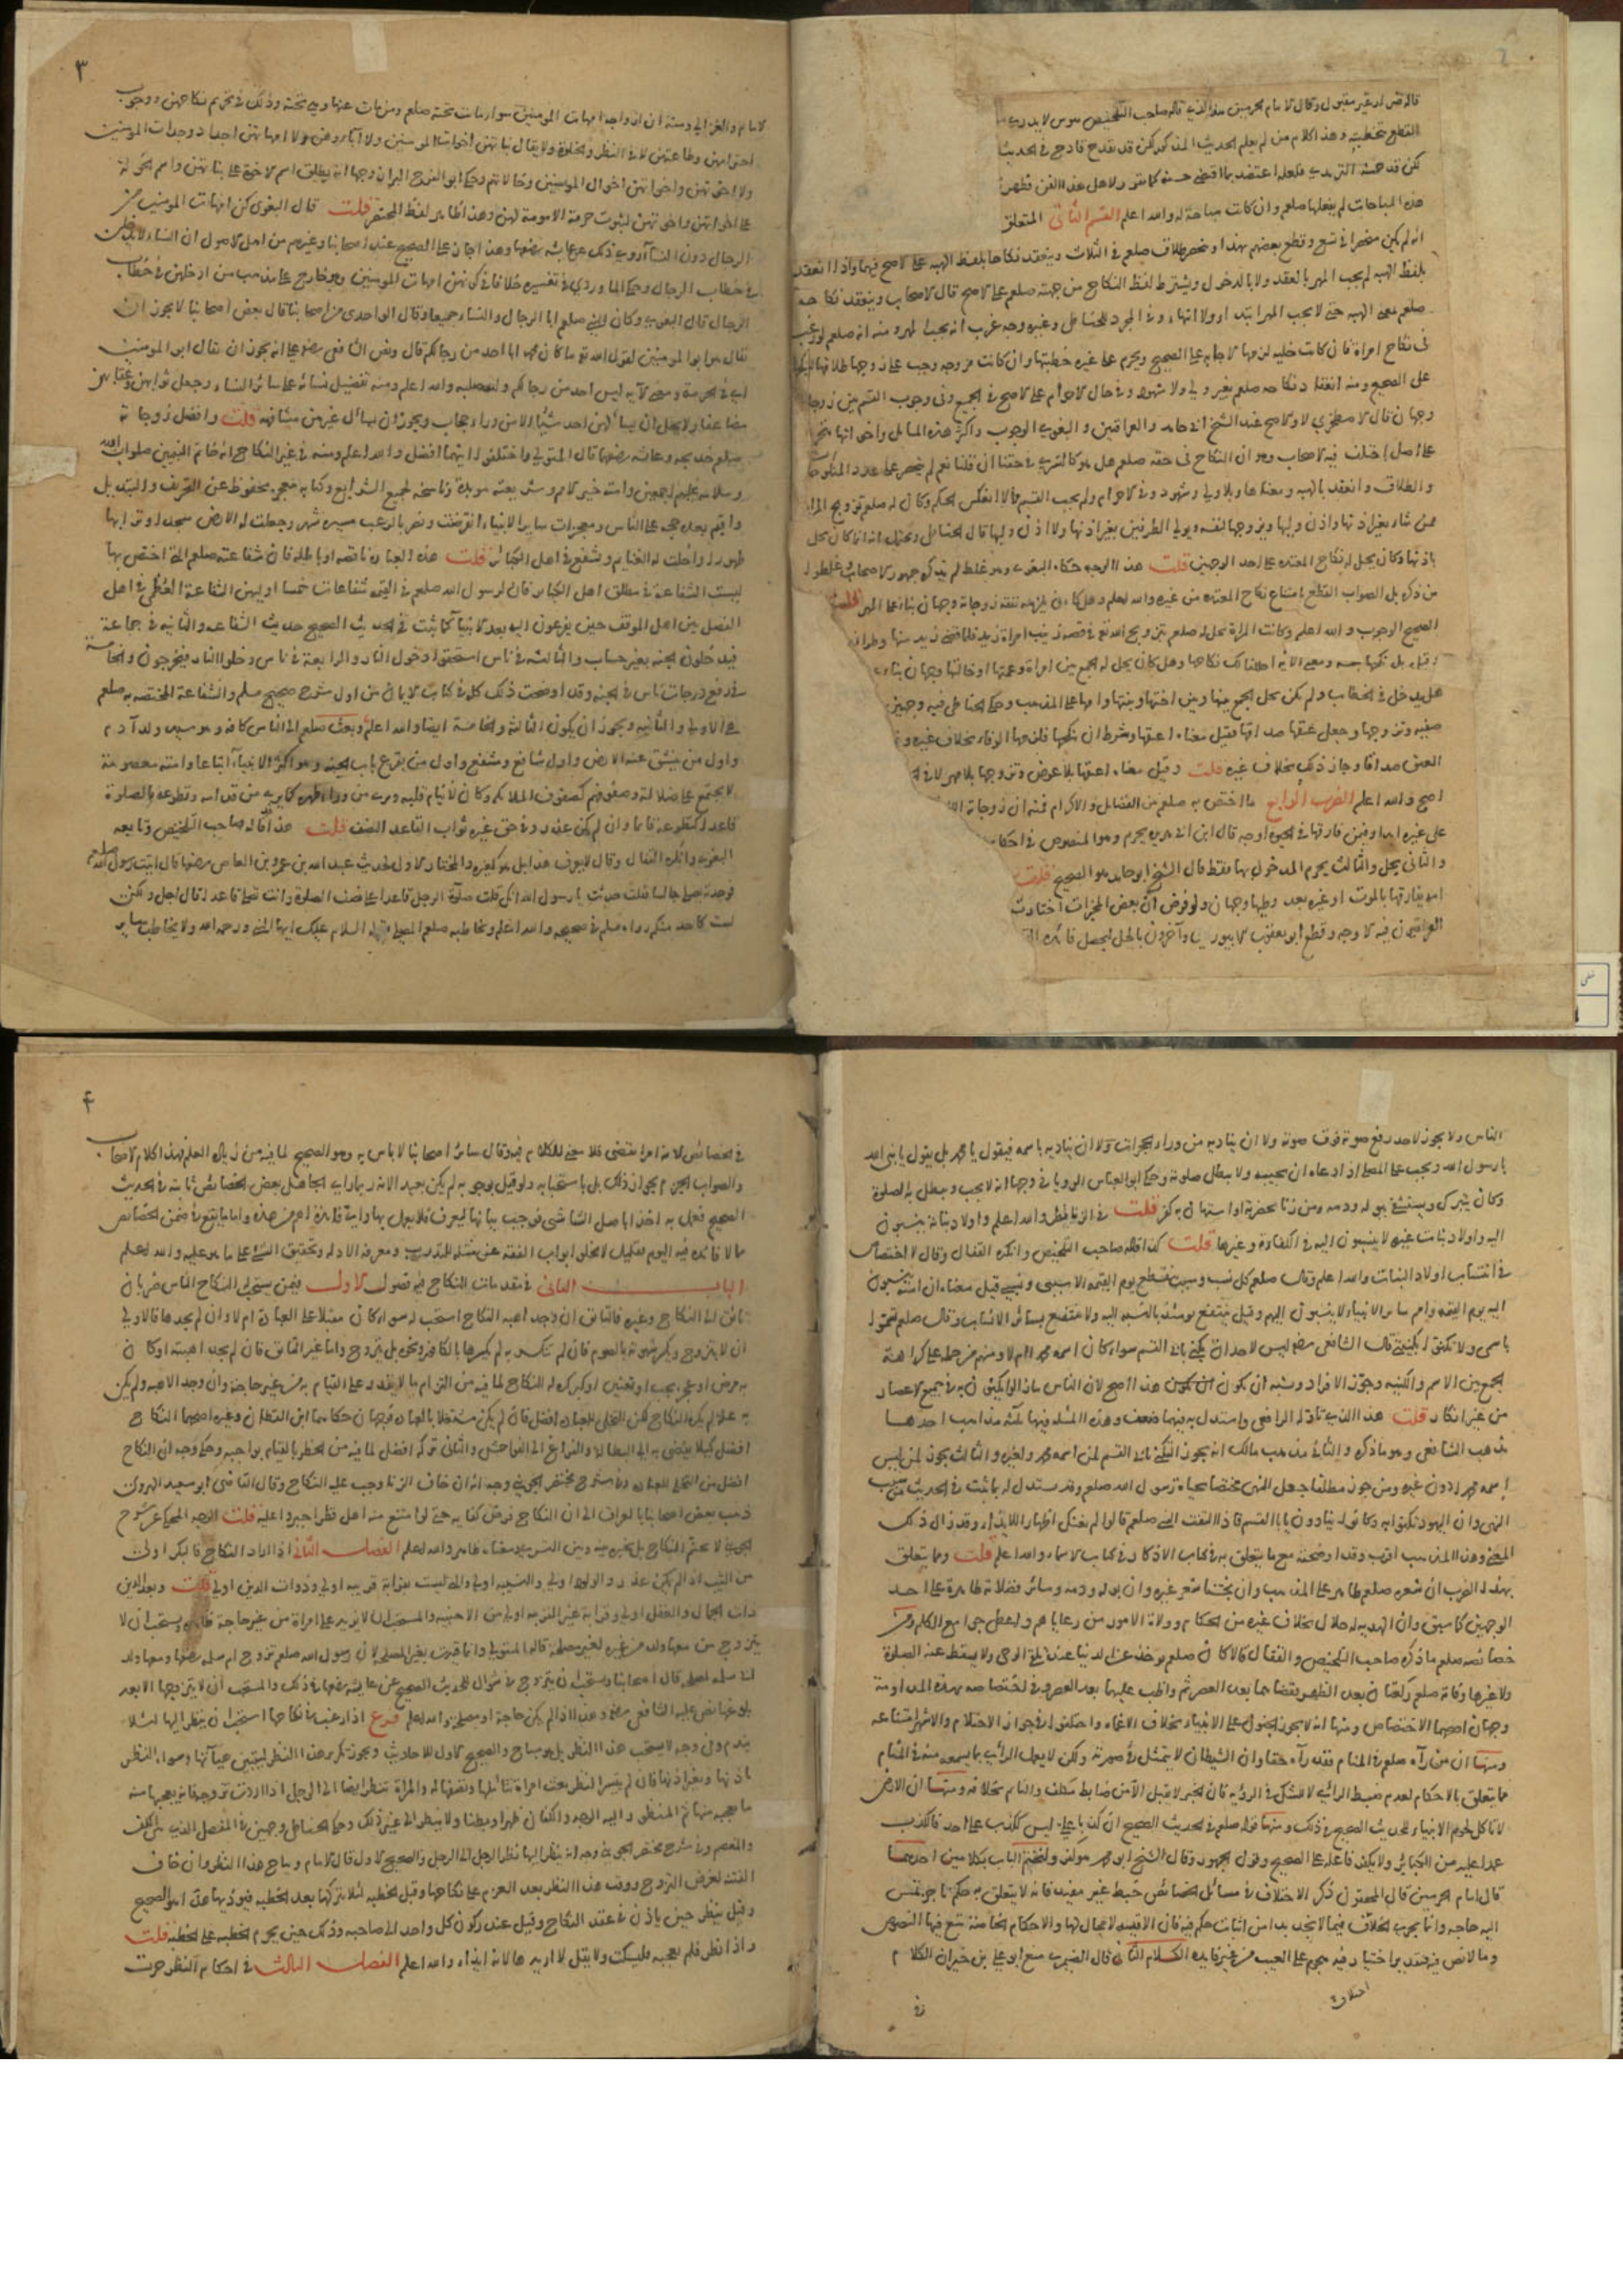 قاله قبل او غير مقبول وقال الامام الحرمين هذا الذي قاله صاحب التلخيص هوس لا يدري
القطع بتخطيته وهذا كلام من لم يعلم الحديث المذكور لكن قد يقدح قادح في الحديث
لكن قد حسنه الترمذي فلعله اعتضد بما اقتضى حسنه
هذه المباحات لم يفعلها صلعم وان كانت مباحة له والله اعلم القسم الثاني المتعلق
انه لم يكن منحصرا في تسع وقطع بعضهم بهذا وينحصر طلاقه صلعم في الثلاث وينعقد نكاحه بلفظ الهبه على الاصح فيهما واذا انعقد
بلفظ الهبه لم يجب المهر بالعقد ولا بالدخول ويشترط لفظ النكاح من جهته صلعم على الاصح قال الاصحاب وينعقد نكاحه
صلعم بمعنى الهبه حتى لا يجب المهر ابتداء ولا انتهاء وفي المجرد للحناطي وغيره وجه غريب انه يجب المهر ومنه انه صلعم لو رغب
في نكاح امراة فان كانت خليه لزمها الاجابه على الصحيح ويحرم على غيره خطبتها وان كانت مزوجه وجب على زوجها طلاقها لينكحها
على الصحيح ومنه انعقاد نكاحه صلعم بغير ولي ولا شهود وفي حال الاحرام على الاصح في الجميع وفي وجوب القسم بين زوجاته
وجهان قال الاصطخري لا والاصح عند الشيخ ابي حامد والعراقيين والبغوي الوجوب واكثر هذه المسايل واخواتها يتخرج
على اصل اختلف فيه الاصحاب وهو ان النكاح في حقه صلعم هل هو كالتسري في حقنا ان قلنا نعم لم ينحصر عدد المنكوحات
والطلاق وانعقد بالهبه ومعناها وبلا ولي وشهود وفي الاحرام ولم يجب القسم والا انعكس الحكم وكان له صلعم تزويج المراة
ممن شاء بغير اذنها واذن وليها وتزوجها لنفسه ويولي الطرفين بغير اذنها ولا اذن وليها قال الحناطي ويحتمل انه انما كان يحل
باذنها وكان يحل له نكاح المعتده على احد الوجهين قلت هذا الوجه حكاه البغوي وهو غلط لم يذكره جمهور الاصحاب وغلطوا
من ذكره بل الصواب القطع بامتناع نكاح المعتده من غيره والله اعلم وهل كان يلزمه نفقه زوجاته وجهان بناء على المهر قلت
الصحيح الوجوب والله اعلم وكانت المراة تحل له صلعم بتزويج الله تع في قصه زينب امراة زيد فلما قضى زيد منها وطرا
وقيل بل نكحها بنفسه ومعنى الايه احللنا لك نكاحها وهل كان يحل له الجمع بين امراة وعمتها او خالتها وجهان بناء
هل يدخل في الخطاب ولم يكن يحل الجمع بينها وبين اختها وبنتها وامها على المذهب وحكى الحناطي فيه وجهين
صفيه وتزوجها وجعل عتقها صداقها فقيل معناه اعتقها وشرط ان ينكحها فلزمها الوفاء بخلاف غيره
العتق صداقا وجاز ذلك بخلاف غيره قلت وقيل معناه اعتقها بلا عوض وتزوجها بلا مهر لا في
اصح والله اعلم الضرب الرابع ما اختص به صلعم من الفضايل والاكرام فمنه ان زوجاته
على غيره ابدا وفيمن فارقها في الحيوة اوجه قال ابن ابي هريره يحرم وهو المنصوص في احكام
والثاني يحل والثالث يحرم المدخول بها فقط قال الشيخ ابو حامد هو الصحيح قلت
امة يفارقها بالموت او غيره بعد وطيها وجهان ولو فرض ان بعض المخيرات اختارت
العراقيون فيه الاوجه وقطع ابو يعقوب الابيوردي وآخرون بالحل ليحصل فائدة
٣
الامام والغزالي ومنه ان ازواجه امهات المومنين سواء من مات تحته صلعم ومن مات عنها وهي تحته وذلك في تحريم نكاحهن ووجوب
احترامهن وطاعتهن لا في النظر والخلوة ولا يقال بناتهن اخوات المومنين ولا آباؤهن ولا امهاتهن اجداد وجدات المومنين
ولا اخوتهن واخواتهن اخوال المومنين وخالاتهم وحكى ابو الفرج البزاز وجها انه يطلق اسم الاخوة على بناتهن واسم الخؤولة
على اخواتهن واخوتهن لثبوت حرمة الامومة لهن وهذا ظاهر لفظ المختصر قلت قال البغوي كن امهات المومنين من
الرجال دون النسآ روي ذلك عن عائشه رضعها وهذا جار على الصحيح عند اصحابنا وغيرهم من اهل الاصول ان النساء لا يدخلن
في خطاب الرجال وحكى الماوردي في تفسيره خلافا في كونهن امهات المومنين وهو خارج على مذهب من ادخلهن في خطاب
الرجال قال البغوي وكان النبي صلعم ابا الرجال والنساء جميعا وقال الواحدي من اصحابنا قال بعض اصحابنا لا يجوز ان
يقال هو ابو المومنين لقول الله تع ما كان محمد ابا احد من رجالكم قال ونص الشافعي رضع على انه يجوز ان يقال ابو المومنين
اي في الحرمة ومعنى الآيه ليس احد من رجالكم ولد صلبه والله اعلم ومنه تفضيل نسائه على سائر النساء وجعل ثوابهن وعقابهن
مضاعفا ولا يحل ان يسألهن احد شيئا الا من وراء حجاب ويجوز ان يسأل غيرهن مشافهة قلت وافضل زوجاته
صلعم خديجه وعائشه رضعهما قال المتولي واختلفوا ايتهما افضل والله اعلم ومنه في غير النكاح انه خاتم النبيين صلوات الله
وسلامه عليهم اجمعين وامته خير الامم وشريعته مؤبدة وناسخه لجميع الشرايع وكتابه معجز محفوظ عن التحريف والتبديل
واقيم بعده حجه على الناس ومعجزات ساير الانبياء انقرضت ونصر بالرعب مسيرة شهر وجعلت له الارض مسجدا وترابها
طهورا واحلت له الغنايم ويشفع في اهل الكبائر قلت هذه العبارة ناقصه او باطله فان شفاعته صلعم التي اختص بها
ليست الشفاعة في مطلق اهل الكبائر فان لرسول الله صلعم في القيمه شفاعات خمسا اوليهن الشفاعة العظمى في اهل
الفصل بين اهل الموقف حين يفزعون اليه بعد الانبياء كما ثبت في الحديث الصحيح حديث الشفاعه والثانيه في جماعة
فيدخلون الجنه بغير حساب والثالثه في ناس استحقوا دخول النار والرابعة في ناس دخلوا النار فيخرجون والخامسة
في رفع درجات ناس في الجنه وقد اوضحت ذلك كله في كتاب الايمان من اول شرح صحيح مسلم والشفاعة المختصه به صلعم
هي الاولى والثانيه ويجوز ان يكون الثالثه والخامسة ايضا والله اعلم وبعث صلعم الى الناس كافه وهو سيد ولد آدم
واول من ينشق عنه الارض واول شافع ومشفع واول من يقرع باب الجنه وهو اكثر الانبياء اتباعا وامته معصومة
لا يجتمع على ضلالة وصفوفهم كصفوف الملائكة وكان لا ينام قلبه ويرى من وراء ظهره كما يرى من قدامه وتطوعه بالصلوة
قاعدا كتطوعه قائما وان لم يكن عذر وفي حق غيره ثواب القاعد النصف قلت هذا قاله صاحب التلخيص وتابعه
البغوي وانكره القفال وقال لا يعرف هذا بل هو كغيره والمختار الاول لحديث عبد الله بن عمرو بن العاص رضعما قال اتيت رسول الله صلعم
فوجدته يصلي جالسا فقلت حدثت يا رسول الله انك قلت صلوة الرجل قاعدا على نصف الصلوة وانت تصلي قاعدا قال اجل ولكن
لست كاحد منكم رواه مسلم في صحيحه والله اعلم ويخاطبه صلعم المصلي بقوله السلام عليك ايها النبي ورحمة الله ولا يخاطب ساير
الناس ولا يجوز لاحد رفع صوته فوق صوته ولا ان يناديه من وراء الحجرات ولا ان يناديه باسمه فيقول يا محمد بل يقول يا نبي الله
يا رسول الله ويجب على المصلي اذا دعاه ان يجيبه ولا يبطل صلوته وحكى ابو العباس الروياني وجها انه لا يجب وتبطل به الصلوة
وكان يتبرك ويستشفى ببوله ودمه ومن زنا بحضرته او استهان به كفر قلت في الزنا نظر والله اعلم واولاد بناته ينسبون
اليه واولاد بنات غيره لا ينسبون اليه في الكفاءة وغيرها قلت كذا قاله صاحب التلخيص وانكره القفال وقال لا اختصاص
في انتساب اولاد البنات والله اعلم وقال صلعم كل نسب وسبب منقطع يوم القيمه الا سببي ونسبي قيل معناه ان امته ينسبون
اليه يوم القيمه وامم سائر الانبياء لا ينسبون اليهم وقيل ينتفع يومئذ بالنسبه اليه ولا ينتفع بسائر الانساب وقال صلعم تسموا
باسمي ولا تكنوا بكنيتي قال الشافعي رضع ليس لاحد ان يكتني بابي القسم سواء كان اسمه محمد ام لا ومنهم من حمله على كراهة
الجمع بين الاسم والكنيه وجوز الافراد ويشبه ان يكون هذا اصح لان الناس ما زالوا يكتنون به في جميع الاعصار
من غير انكار قلت هذا الذي تاوله الرافعي واستدل به فيهما ضعف وهذه المسئله فيها ثلثة مذاهب احدها
مذهب الشافعي وهو ما ذكره والثاني مذهب مالك انه يجوز التكني بابي القسم لمن اسمه محمد ولغيره والثالث يجوز لمن ليس
اسمه محمدا دون غيره ومن جوز مطلقا جعل النهي مختصا بحياة رسول الله صلعم وقد يستدل له بما ثبت في الحديث من سبب
النهي وان اليهود تكنوا به وكانوا ينادون يا ابا القسم فاذا التفت النبي صلعم قالوا لم نعنك اظهارا للايذاء وقد زال ذلك
المعنى وهذا المذهب اقرب وقد اوضحته مع ما يتعلق به في كتاب الاذكار في كتاب الاسماء والله اعلم قلت ومما يتعلق
بهذا الضرب ان شعره صلعم طاهر على المذهب وان نجسنا شعر غيره وان بوله ودمه وسائر فضلاته طاهرة على احد
الوجهين كما سبق وان الهديه له حلال بخلاف غيره من الحكام وولاة الامور من رعاياهم واعطي جوامع الكلم ومن
خصائصه صلعم ما ذكره صاحب التلخيص والقفال قالا كان صلعم يوخذ عن الدنيا عند تلقي الوحي ولا يسقط عنه الصلوة
ولا غيرها وفاته صلعم ركعتان بعد الظهر فقضاهما بعد العصر ثم واظب عليهما بعد العصر وفي اختصاصه بهذه المداومة
وجهان اصحهما الاختصاص ومنها انه لا يجوز الجنون على الانبياء بخلاف الاغماء واختلفوا في جواز الاحتلام والاشهر امتناعه
ومنها ان من رآه صلعم في المنام فقد رآه حقا وان الشيطان لا يتمثل في صورته ولكن لا يعمل الرائي بما يسمعه منه في المنام
مما يتعلق بالاحكام لعدم ضبط الرائي لا للشك في الرؤيه فان الخبر لا يقبل الا من ضابط مكلف والنائم بخلافه ومنها ان الارض
لا تاكل لحوم الانبياء للحديث الصحيح في ذلك ومنها قوله صلعم في الحديث الصحيح ان كذبا علي ليس ككذب على احد فالكذب
عمدا عليه من الكبائر ولا يكفر فاعله على الصحيح وقول الجمهور وقال الشيخ ابو محمد هو كفر ولنختم الباب بكلامين احدهما
قال امام الحرمين قال المحققون ذكر الاختلاف في مسائل الخصائص خبط غير مفيد فانه لا يتعلق به حكم ناجز تمس
اليه حاجه وانما يجري الخلاف فيما لا نجد بدا من اثبات حكم فيه فان الاقيسه لا مجال لها والاحكام الخاصة تتبع فيها النصوص
وما لا نص فيه فتقدير اختيار فيه هجوم على الغيب من غير فايده الكلام الثاني قال الصيمري منع ابو علي بن خيران الكلام
في
٤
في الخصائص لانه امر انقضى فلا معنى للكلام فيه وقال سائر اصحابنا لا باس به وهو الصحيح لما فيه من زيادة العلم فهذا كلام الاصحاب
والصواب الجزم بجواز ذلك بل باستحبابه ولو قيل بوجوبه لم يكن بعيدا لانه ربما رأى الجاهل بعض الخصائص ثابته في الحديث
الصحيح فعمل به اخذا باصل التاسي فوجب بيانها لتعرف فلا يعمل بها واية فايدة اهم من هذه واما ما يقع في ضمن الخصائص
مما لا فائده فيه اليوم فقليل لا تخلو ابواب الفقه عن مثله للتدرب ومعرفه الادله وتحقيق الشيء على ما هو عليه والله اعلم
الباب الثاني في مقدمات النكاح فيه فصول الاول فيمن يستحب له النكاح الناس ضربان
تائق الى النكاح وغيره فالتائق ان وجد اهبه النكاح استحب له سواء كان مقبلا على العبادة ام لا وان لم يجدها فالاولى
ان لا يتزوج ويكسر شهوته بالصوم فان لم تنكسر به لم يكسرها بالكافور ونحوه بل يتزوج واما غير التائق فان لم يجد اهبته او كان
به مرض او عجز بجب او تعنين او كبر كره له النكاح لما فيه من التزام ما لا يقدر على القيام به من غير حاجة وان وجد الاهبه ولم يكن
به علة لم يكره له النكاح لكن التخلي للعبادة افضل فان لم يكن مشتغلا بالعبادة فوجهان حكاهما ابن القطان وغيره اصحهما النكاح
افضل كيلا يفضي به الى البطالة والفراغ الى الفواحش والثاني تركه افضل لما فيه من الخطر بالقيام بواجبه وحكي وجه ان النكاح
افضل من التخلي للعبادة وفي شرح مختصر الجويني وجه انه ان خاف الزنا وجب عليه النكاح وقال القاضي ابو سعيد الهروي
ذهب بعض اصحابنا بالعراق الى ان النكاح فرض كفايه حتى لو امتنع منه اهل قطر اجبروا عليه قلت الوجه المحكي عن شرح
الجويني لا يحتم النكاح بل يخيره بينه وبين التسري ومعناه ظاهر والله اعلم الفصل الثاني اذا اراد النكاح فالبكر اولى
من الثيب اذا لم يكن عذر والولود اولى والنسيبه اولى والتي ليست بقرابة قريبه اولى وذوات الدين اولى قلت وبعد الدين
ذات الجمال والعقل اولى وقرابة غير القريبه اولى من الاجنبيه والمستحب ان لا يزيد على امراة من غير حاجة ظاهره ويستحب ان لا
يتزوج من معها ولد من غيره لغير مصلحة قاله المتولي وانما قيدت بغير المصلحه لان رسول الله صلعم تزوج ام سلمه رضعها ومعها ولد
ابي سلمه رضعهم قال اصحابنا ويستحب ان يتزوج في شوال للحديث الصحيح عن عايشه رضعها في ذلك والمستحب ان لا يزوجها الا بعد
بلوغها نص عليه الشافعي رضع وهذا اذا لم يكن حاجة او مصلحة والله اعلم فرع اذا رغب في نكاحها استحب ان ينظر اليها لئلا
يندم وفي وجه لا يستحب هذا النظر بل هو مباح والصحيح الاول للاحاديث ويجوز تكرير هذا النظر ليتبين هيأتها وسواء النظر
باذنها وبغير اذنها فان لم يتيسر النظر بعث امراة تتأملها وتصفها له والمراة تنظر ايضا الى الرجل اذا ارادت تزوجه فانه يعجبها منه
ما يعجبه منها ثم المنظور اليه الوجه والكفان ظهرا وبطنا ولا ينظر الى غير ذلك وحكى الحناطي وجهين في المفصل الذي بين الكف
والمعصم وفي شرح مختصر الجويني وجه انه ينظر اليها نظر الرجل الى الرجل والصحيح الاول قال الامام ويباح هذا النظر وان خاف
الفتنه لغرض التزوج ووقت هذا النظر بعد العزم على نكاحها وقبل الخطبه لئلا يتركها بعد الخطبه فيوذيها هذا هو الصحيح
وقيل ينظر حين ياذن في عقد النكاح وقيل عند ركون كل واحد الى صاحبه وذلك حين يحرم الخطبه على الخطبه قلت
واذا نظر فلم يعجبه فليسكت ولا يقل لا اريدها لانه ايذاء والله اعلم الفصل الثالث في احكام النظر حرت